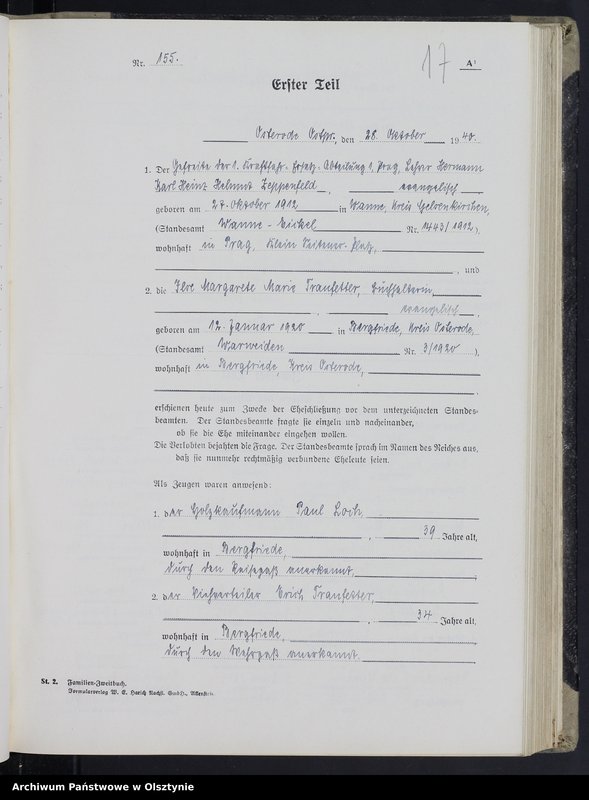 Nr. 155.
17
A¹
Erster Teil
Osterode Ostpr., den 28. Oktober 1940.
1. Der Gefreite der 1. Kraftfahr-Ersatz-Abteilung 1, Prag, Lehrer Hermann
Karl Heinz Helmut Zeppenfeld, evangelisch
geboren am 27. Oktober 1912 in Wanne, Kreis Gelsenkirchen,
(Standesamt Wanne-Eickel Nr. 1443/1912),
wohnhaft in Prag, Klein
, und
2. die Ilse Margarete Marie Tranfettler, Buchhalterin,
evangelisch,
geboren am 12. Januar 1920 in Bergfriede, Kreis Osterode,
(Standesamt Warweiden Nr. 3/1920),
wohnhaft in Bergfriede, Kreis Osterode,
erschienen heute zum Zwecke der Eheschließung vor dem unterzeichneten Standes-
beamten. Der Standesbeamte fragte sie einzeln und nacheinander,
ob sie die Ehe miteinander eingehen wollen.
Die Verlobten bejahten die Frage. Der Standesbeamte sprach im Namen des Reiches aus,
daß sie nunmehr rechtmäßig verbundene Eheleute seien.
Als Zeugen waren anwesend:
1. der Holzkaufmann Paul Loch,
39 Jahre alt,
wohnhaft in Bergfriede,
durch den Reisepaß anerkannt,
2. der Viehverteiler Erich Tranfettler,
34 Jahre alt,
wohnhaft in Bergfriede,
durch den Wehrpaß anerkannt.
St. 2. Familien-Zweitbuch.
Formularverlag W. E. Harich Nachf. GmbH., Allenstein.
Archiwum Państwowe w Olsztynie